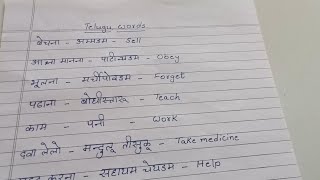 Telugu Words
बेचना - अम्मडम - Sell
आज्ञा मानना - पाटिंचडम - Obey
भूलना - मर्चीपोवडम - Forget
पढाना - बोधीस्तारू - Teach
काम - पनी - Work
दवा लेलो - मन्दुलू तीसुकू - Take medicine
मदद करना - सहायम चेयडम - Help